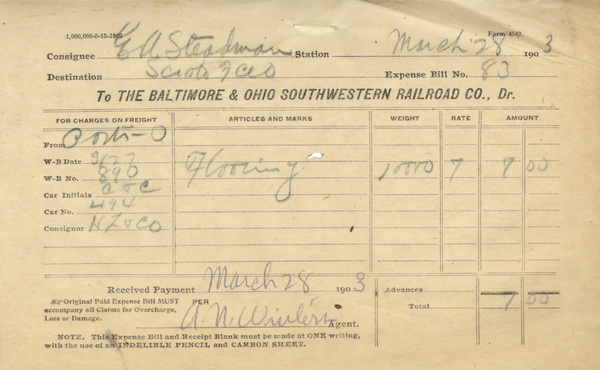 1,000,000-5-15-1902 Form 4542.
Consignee E A Steadman Station March 28 1903
Destination Scioto Expense Bill No. 83
To THE BALTIMORE & OHIO SOUTHWESTERN RAILROAD CO., Dr.
FOR CHARGES ON FREIGHT ARTICLES AND MARKS WEIGHT RATE AMOUNT
From Ports-O
W-B Date 3/27 Flooring 10000 7 7 00
W-B No. 890
Car Initials
Car No. 494
Consignor
Received Payment March 28 1903 Advances
Original Paid Expense Bill MUST PER
accompany all Claims for Overcharge, Total 7 00
Loss or Damage. A. N. Agent.
NOTE. This Expense Bill and Receipt Blank must be made at ONE writing,
with the use of an INDELIBLE PENCIL and CARBON SHEET.